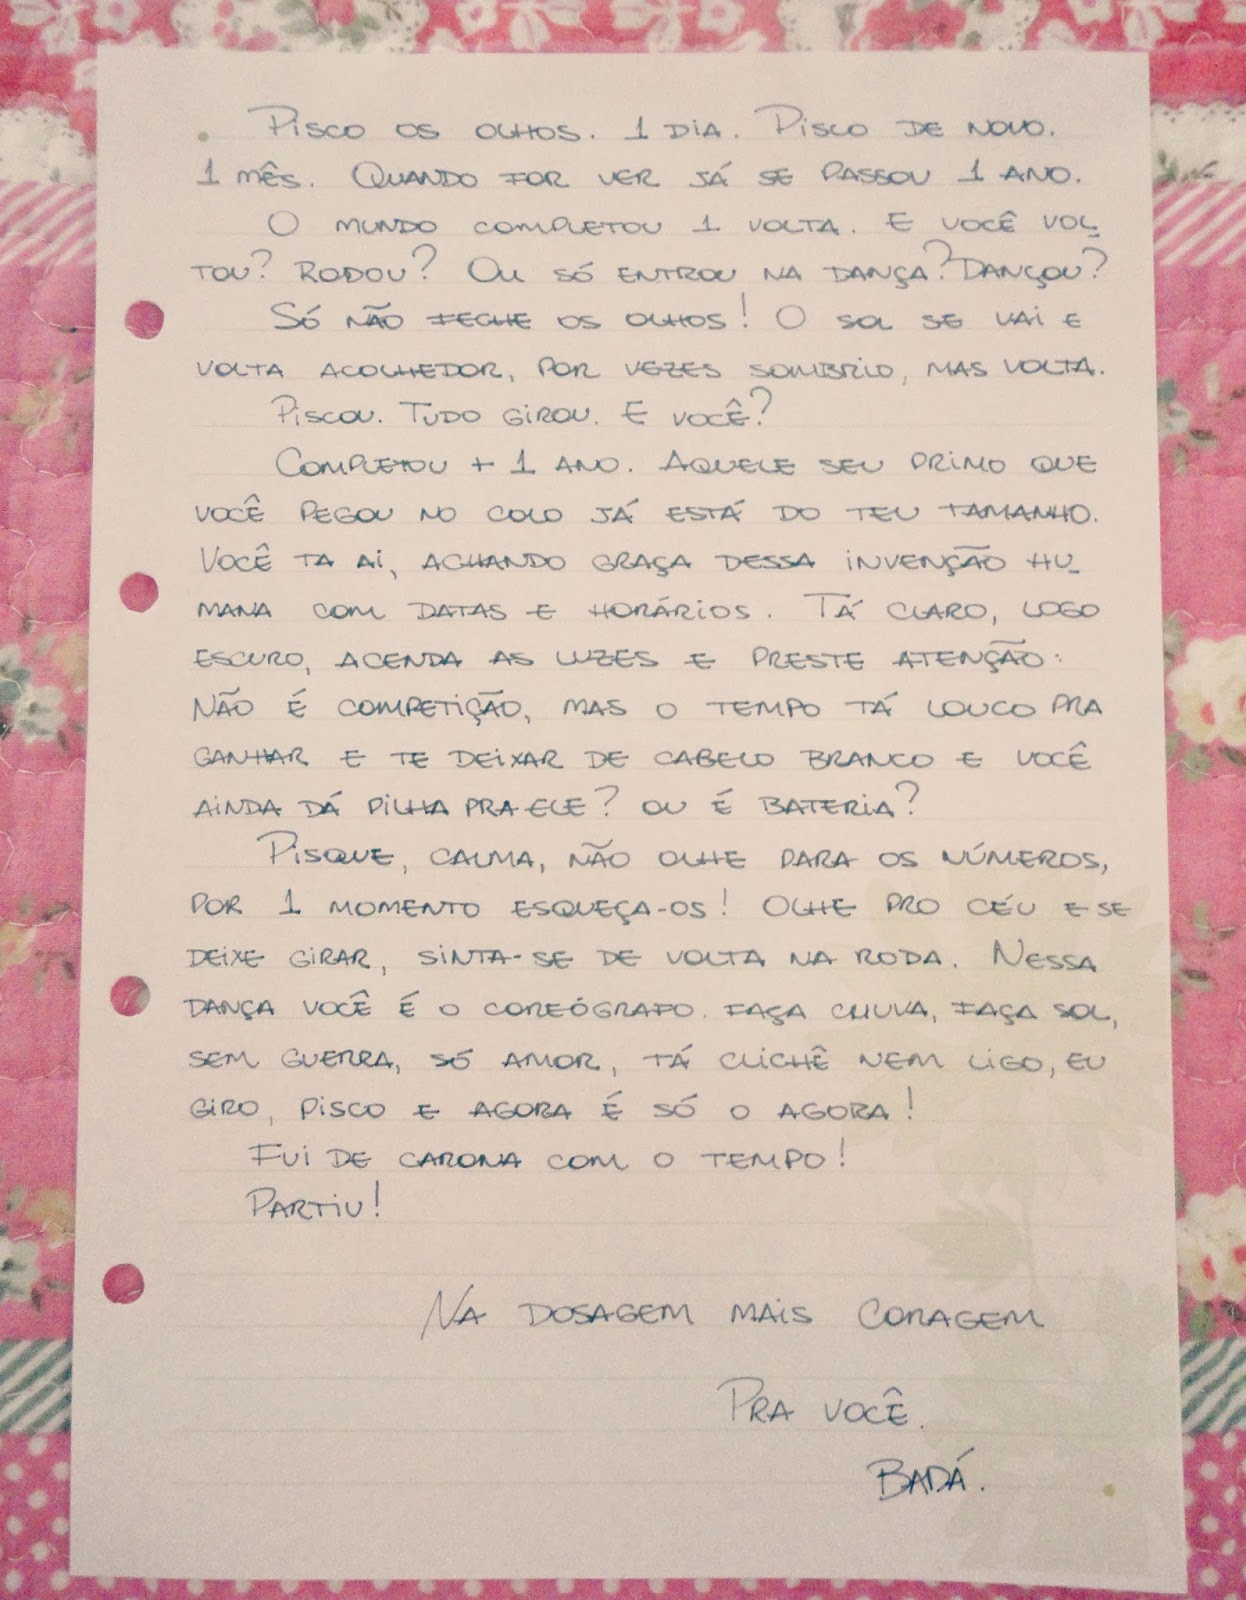 Pisco os olhos. 1 dia. Pisco de novo.
1 mês. Quando for ver já se passou 1 ano.
O mundo completou 1 volta. E você vol-
tou? Rodou? Ou só entrou na dança? Dançou?
Só não feche os olhos! O sol se vai e
volta acolhedor, por vezes sombrio, mas volta.
Piscou. Tudo girou. E você?
Completou + 1 ano. Aquele seu primo que
você pegou no colo já está do teu tamanho.
Você ta aí, achando graça dessa invenção hu-
mana com datas e horários. Tá claro, logo
escuro, acenda as luzes e preste atenção:
não é competição, mas o tempo tá louco pra
ganhar e te deixar de cabelo branco e você
ainda dá pilha pra ele? ou é bateria?
Pisque, calma, não olhe para os números,
por 1 momento esqueça-os! Olhe pro céu e se
deixe girar, sinta-se de volta na roda. Nessa
dança você é o coreógrafo. faça chuva, faça sol,
sem guerra, só amor, tá clichê nem ligo, eu
giro, pisco e agora é só o agora!
Fui de carona com o tempo!
Partiu!
Na dosagem mais coragem
Pra você.
Badá.